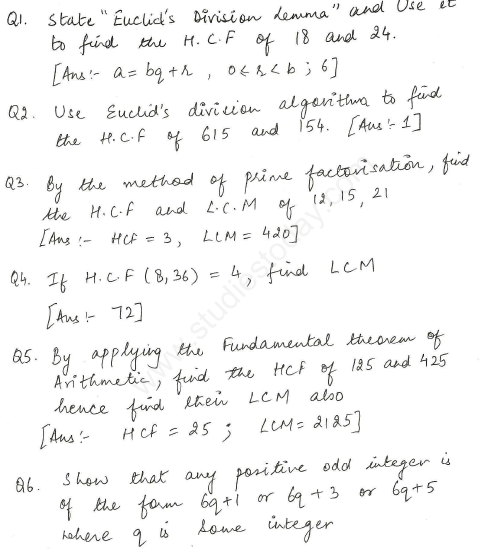 Q1. State "Euclid's Division Lemma" and Use it
to find the H.C.F of 18 and 24.
[Ans:- a= bq + r , 0 ≤ r < b ; 6]
Q2. Use Euclid's division algorithm to find
the H.C.F of 615 and 154. [Ans:- 1]
Q3. By the method of prime factorisation, find
the H.C.F and L.C.M of 12, 15, 21
[Ans:- HCF = 3, LCM = 420]
Q4. If H.C.F (8,36) = 4, find LCM
[Ans:- 72]
Q5. By applying the Fundamental theorem of
Arithmetic, find the HCF of 125 and 425
hence find their LCM also
[Ans:- HCF = 25 ; LCM = 2125]
Q6. Show that any positive odd integer is
of the form 6q+1 or 6q+3 or 6q+5
where q is some integer
www.studiestoday.com